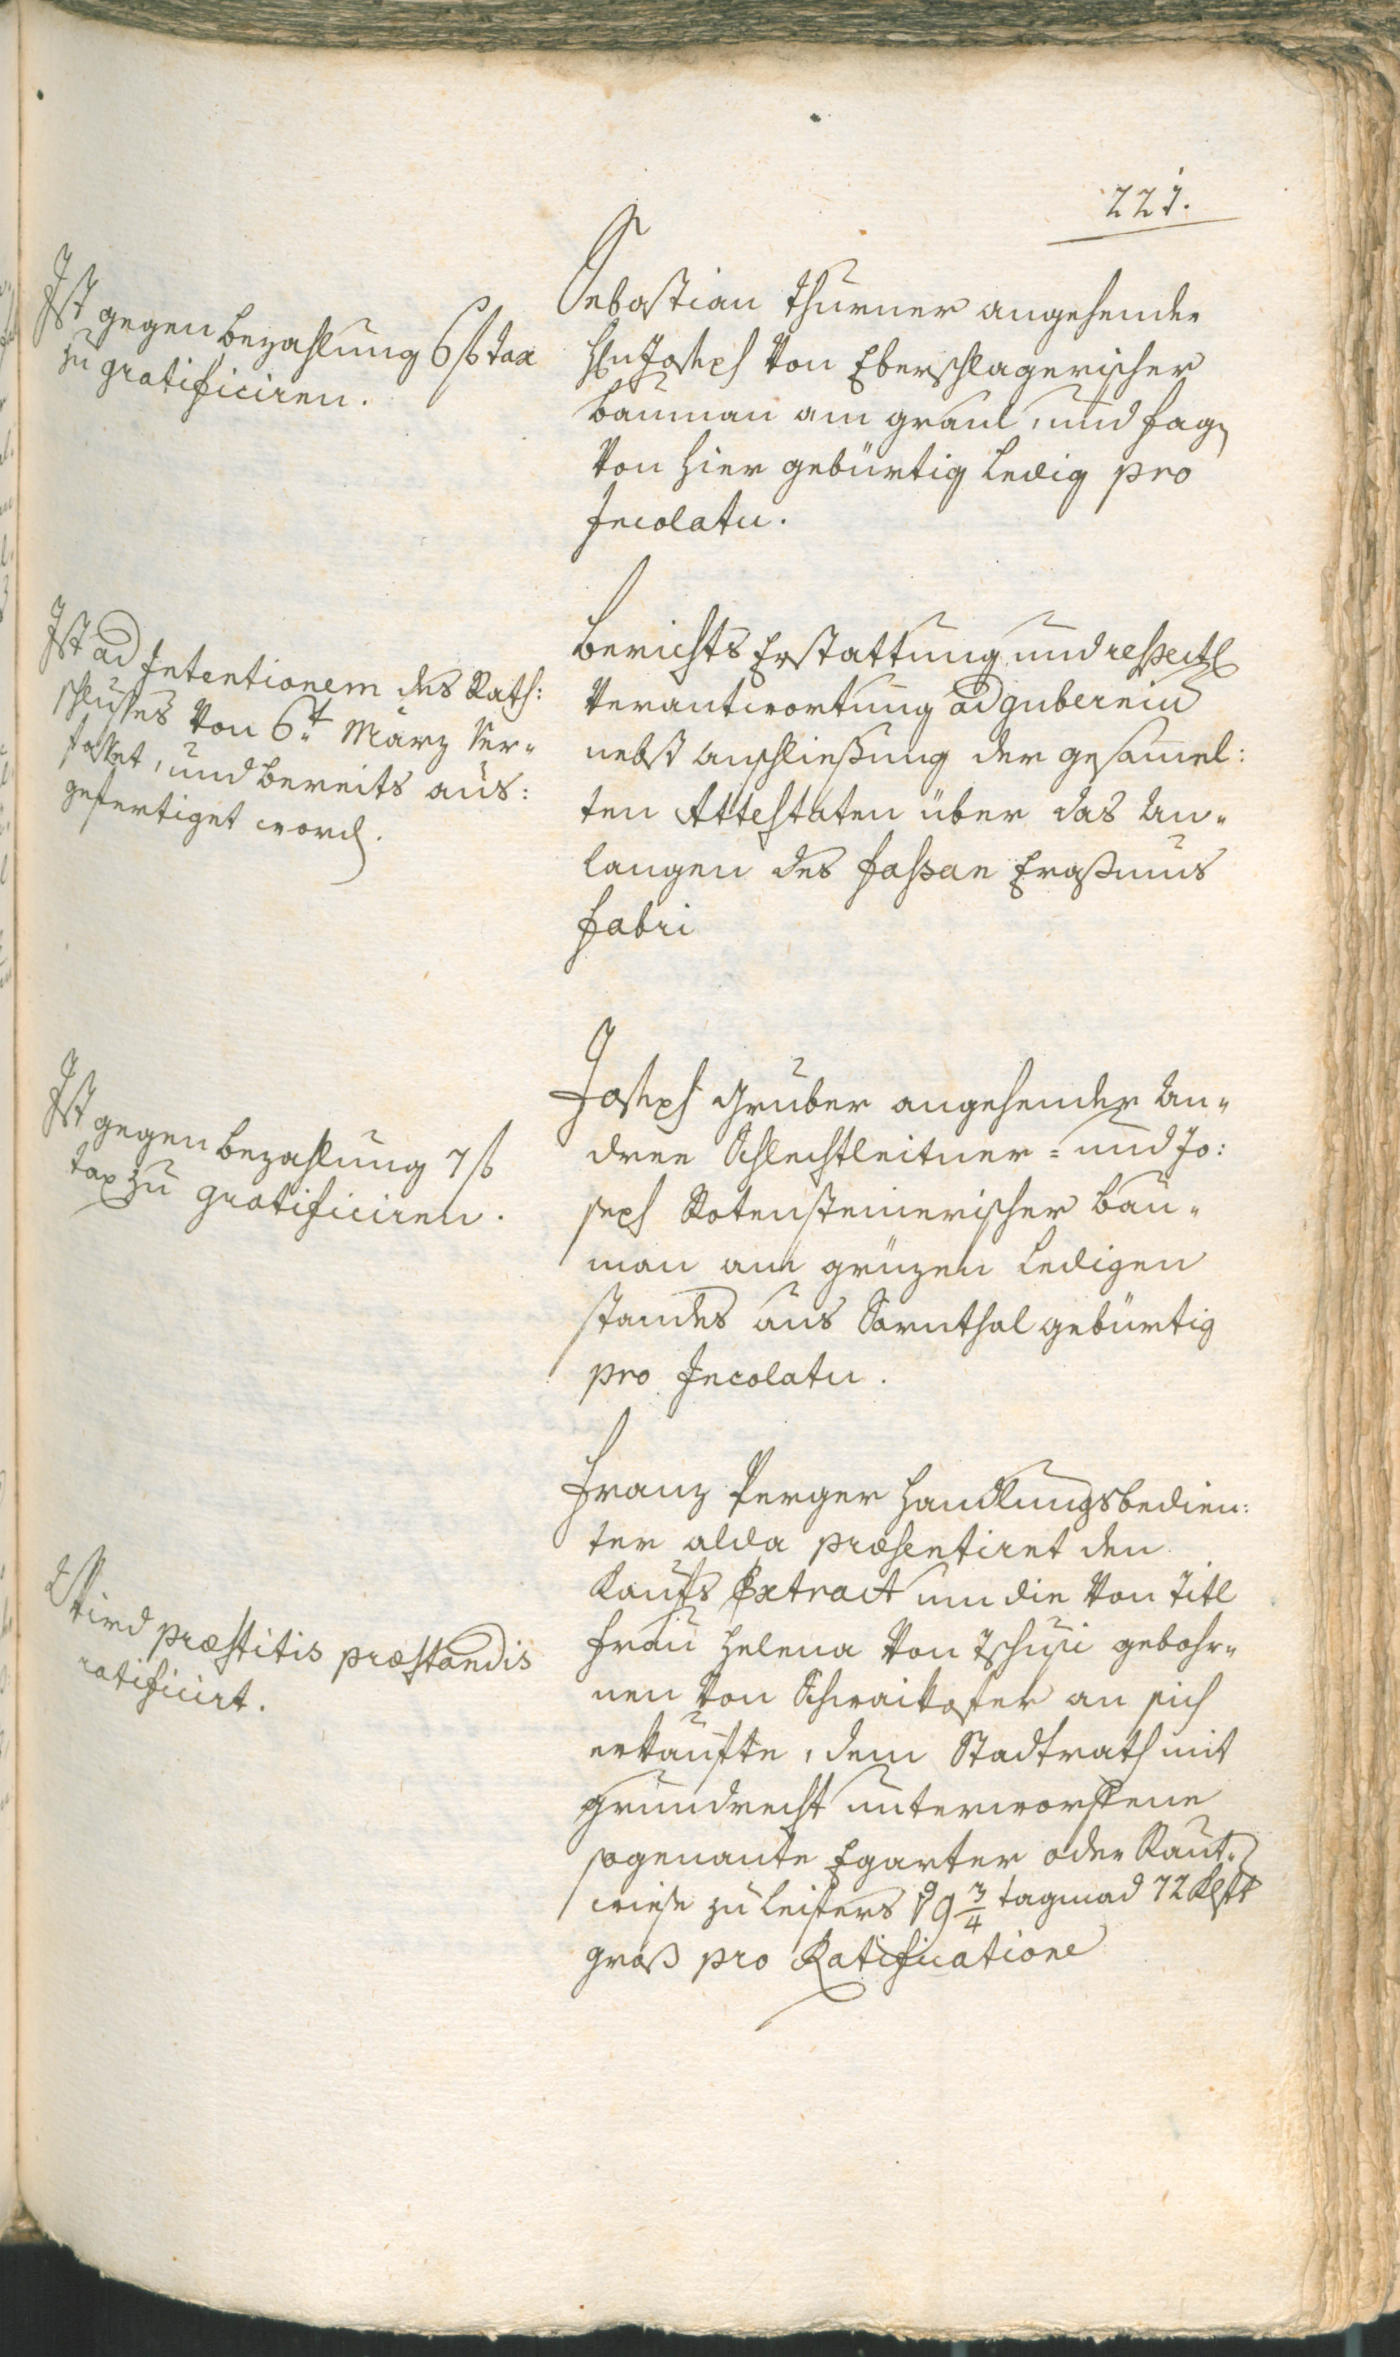 221.
Ist gegen Bezahlung 6 f tax
zu gratificiren.
Sebastian Thurner angehender
Hln Joseph von Eberschlagerischer
Bauman am graul, und sag
von hier gebürtig ledig pro
Incolatu.
Ist ad Intentionem des Rath:
schlusses von 6t März ver-
fasset, und bereits aus:
gefertiget word.
Berichts Erstattung und respectl
Verantwortung ad guberniu
nebst Anschliessung der gesamel:
ten Attestaten über das An-
langen des Fassan Erassmus
Fabri
Ist gegen Bezahlung 7 f
tax zu gratificiren.
Joseph Gruber angehender An-
dree Schlechtleitner- und Jo:
seph Rotensteinerischer Bau-
man am grüzen ledigen
standes aus Sarnthal gebürtig
pro Incolatu.
Wird præstitis præstandis
ratificirt.
Franz Perger Handlungsbedien:
ter alda præsentiret den
Kaufs Extract um die von Titl
Frau Helena von Tschusi gebohr-
nen von Schraikofer an sich
erkaufte, dem Stadtrath mit
grundrecht unterworffene
sogenante Egarter oder Raut-
wiese zu Leifers 19 3/4 tagmad 72 Klftr
gross pro Ratificatione